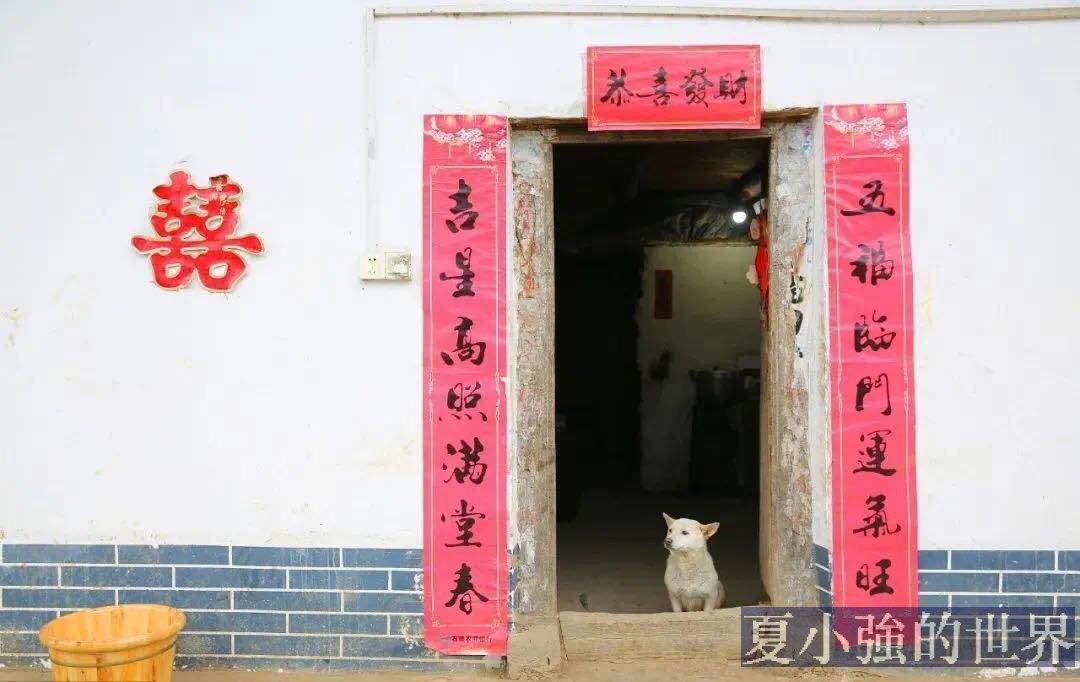 恭喜發財
囍
吉星高照满堂春
五福臨門運氣旺
夏小強的世界